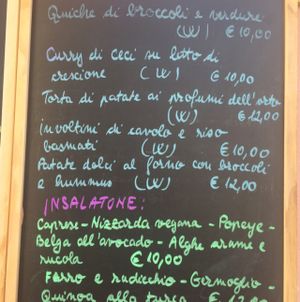 Quiche di broccoli e verdure
(W) € 10,00
Curry di ceci su letto di
crescione (W) € 10,00
Torta di patate ai profumi dell'orto
(W) € 12,00
Involtini di cavolo e riso
basmati (W) € 10,00
Patate dolci al forno con broccoli
e hummus (W) € 12,00
INSALATONE:
Caprese - Nizzarda vegana - Popeye -
Belga all'avocado - Alghe arame e
rucola € 10,00
Farro e radicchio - Germoglio -
Quinoa alla turca